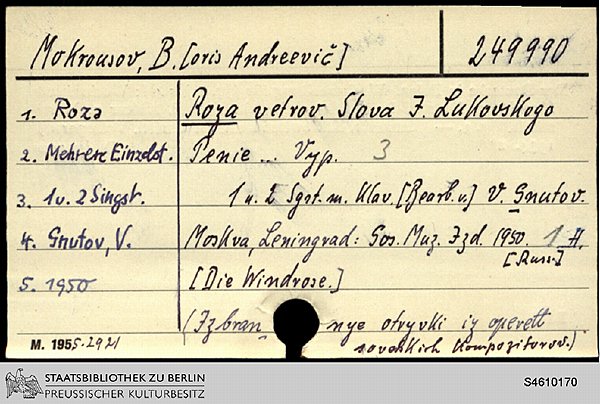 Mokrousov, B.[oris Andreevič] 249990
1. Roza Roza vetrov. Slova I. Lukovskogo
2. Mehrere Einzelst. Penie ... Vyp. 3
3. 1 u. 2 Singst. 1 u. 2 Sgst. m. Klav. [Bearb. v.] V. Gnutov.
4. Gnutov, V. Moskva, Leningrad: Gos. Muz. Izd. 1950. 1 H.
[Russ.]
5. 1950 [Die Windrose.]
(Izbran nye otryvki iz operett
sovetskich kompozitorov.)
M. 1955.2921
STAATSBIBLIOTHEK ZU BERLIN
PREUSSISCHER KULTURBESITZ
S4610170